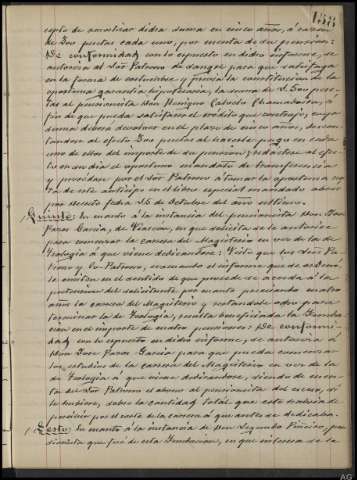 cepto de amortizar dicha suma en cinco años, á razón
de Don pesetas cada uno, por cuenta de su pension:
De conformidad con lo expuesto en dicho informe, se
autoriza al Sor Patrono de Sangre para que satisfaga
en la forma de costumbre y previa la constitucion de la
oportuna garantia hipotecaria, la suma de pese-
tas al pensionista Don Benigno Cabedo Chamarbán, a
fin de que pueda satisfacer el crédito que contrajo, cuya
suma deberá devolver en el plazo de cinco años, descon-
tandose al efecto pesetas de haberle pago en cada
uno de ellos del importe de su pension; y dedúzcase al efec-
to en su dia el oportuno mandato de transferencia
y procédase por el Sor Patrono á tomar la oportuna no-
ta de este anticipo en el libro especial mandado abrir
por decreto fecha 15 de Octubre del año último.
Quinto: En cuanto á la instancia del pensionista Don José
Paros Garcia, de Viacón, en que solicita se le autorice
para comenzar la carrera del Magisterio en vez de la de
Teología á que viene dedicándose: Visto que los Sres Pa-
trono y Co-Patrono, evacuando el informe que se les pidió,
lo emiten en el sentido de que procede se acceda á la
pretension del solicitante, por cuanto precisando cuatro
años la carrera del Magisterio y restándole ocho para
terminar la de Teología, resulta beneficiada la Funda-
cion en el importe de cuatro pensiones: De conformi-
dad con lo expuesto en dicho informe, se autoriza á
Don José Paros Garcia para que pueda comenzar
los estudios de la carrera del Magisterio en vez de la
de Teología á que viene dedicándose, siendo de cuen-
ta de Sor Patrono el abono de pension del exceso, si
lo hubiere, sobre la cantidad total que este habria de
percibir por el coste de la carrera á que antes se dedicaba.
Sexto: En cuanto á la instancia de Don Segundo Piñeiro, pen-
sionista que fué de esta Fundacion, en que interesa se le
AG